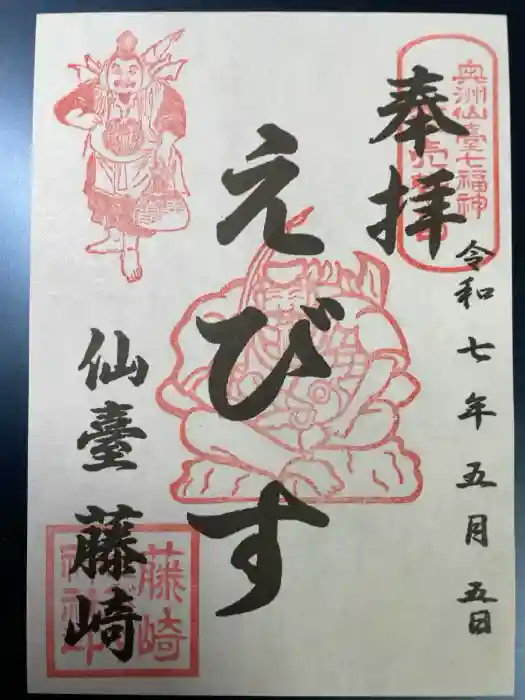 奥州仙臺七福神
奉拝
令和七年五月五日
えびす
仙臺藤崎
藤崎